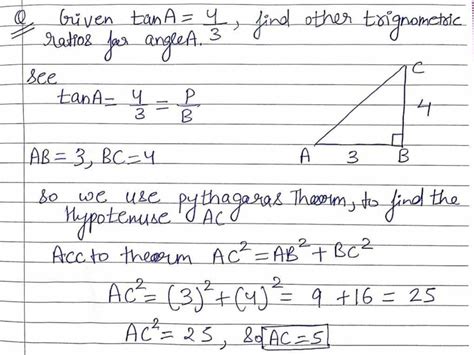 Q Given tanA = 4/3, find other trignometric
ratios for angle A.
see
tanA = 4/3 = P/B
C
4
A 3 B
AB = 3, BC = 4
so we use pythagoras Theorm, to find the
Hypotenuse AC
Acc to theorm AC² = AB² + BC²
AC² = (3)² + (4)² = 9 + 16 = 25
AC² = 25, so AC = 5